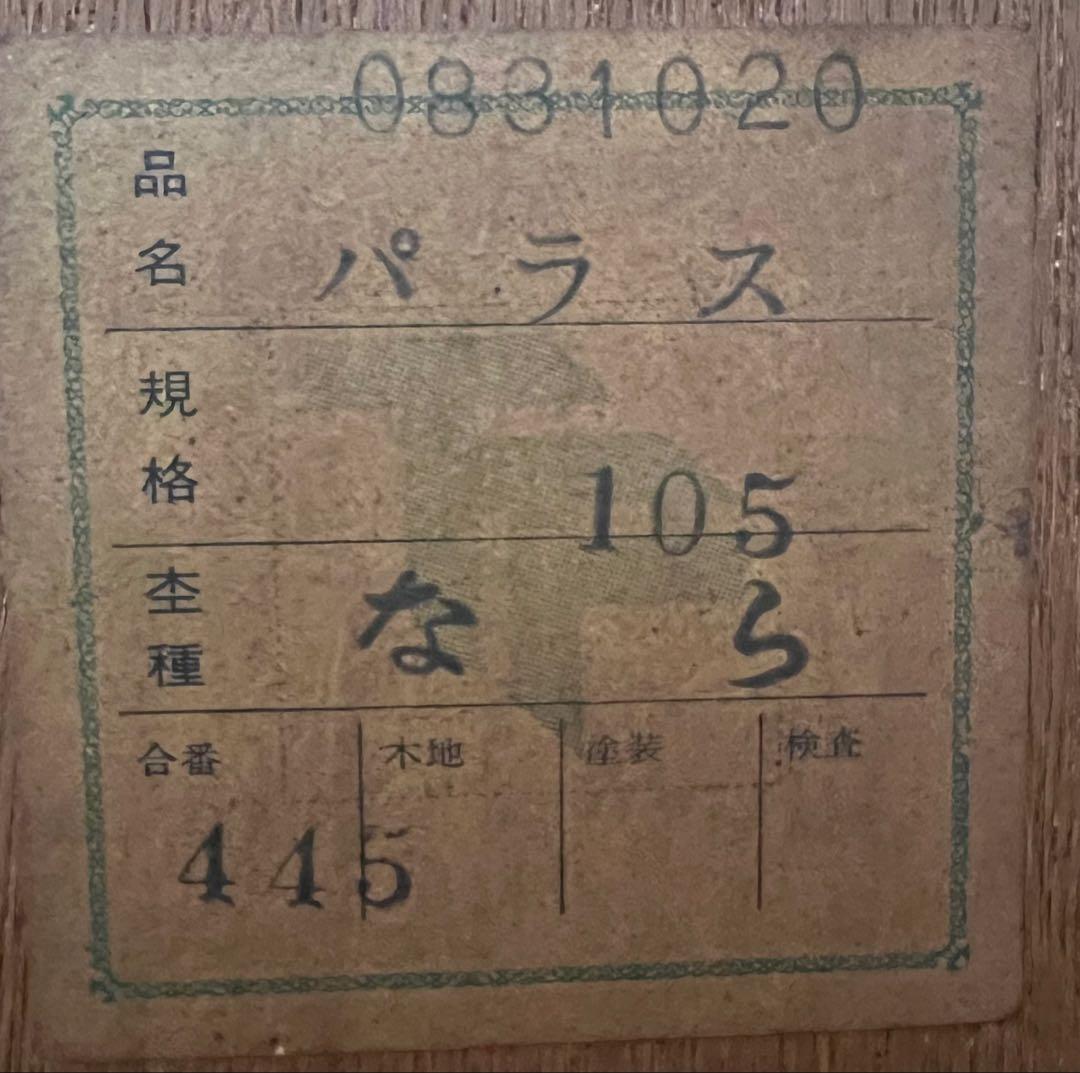 0831020
品名 パラス
規格 105
杢種 なら
合番 木地 塗装 検査
445